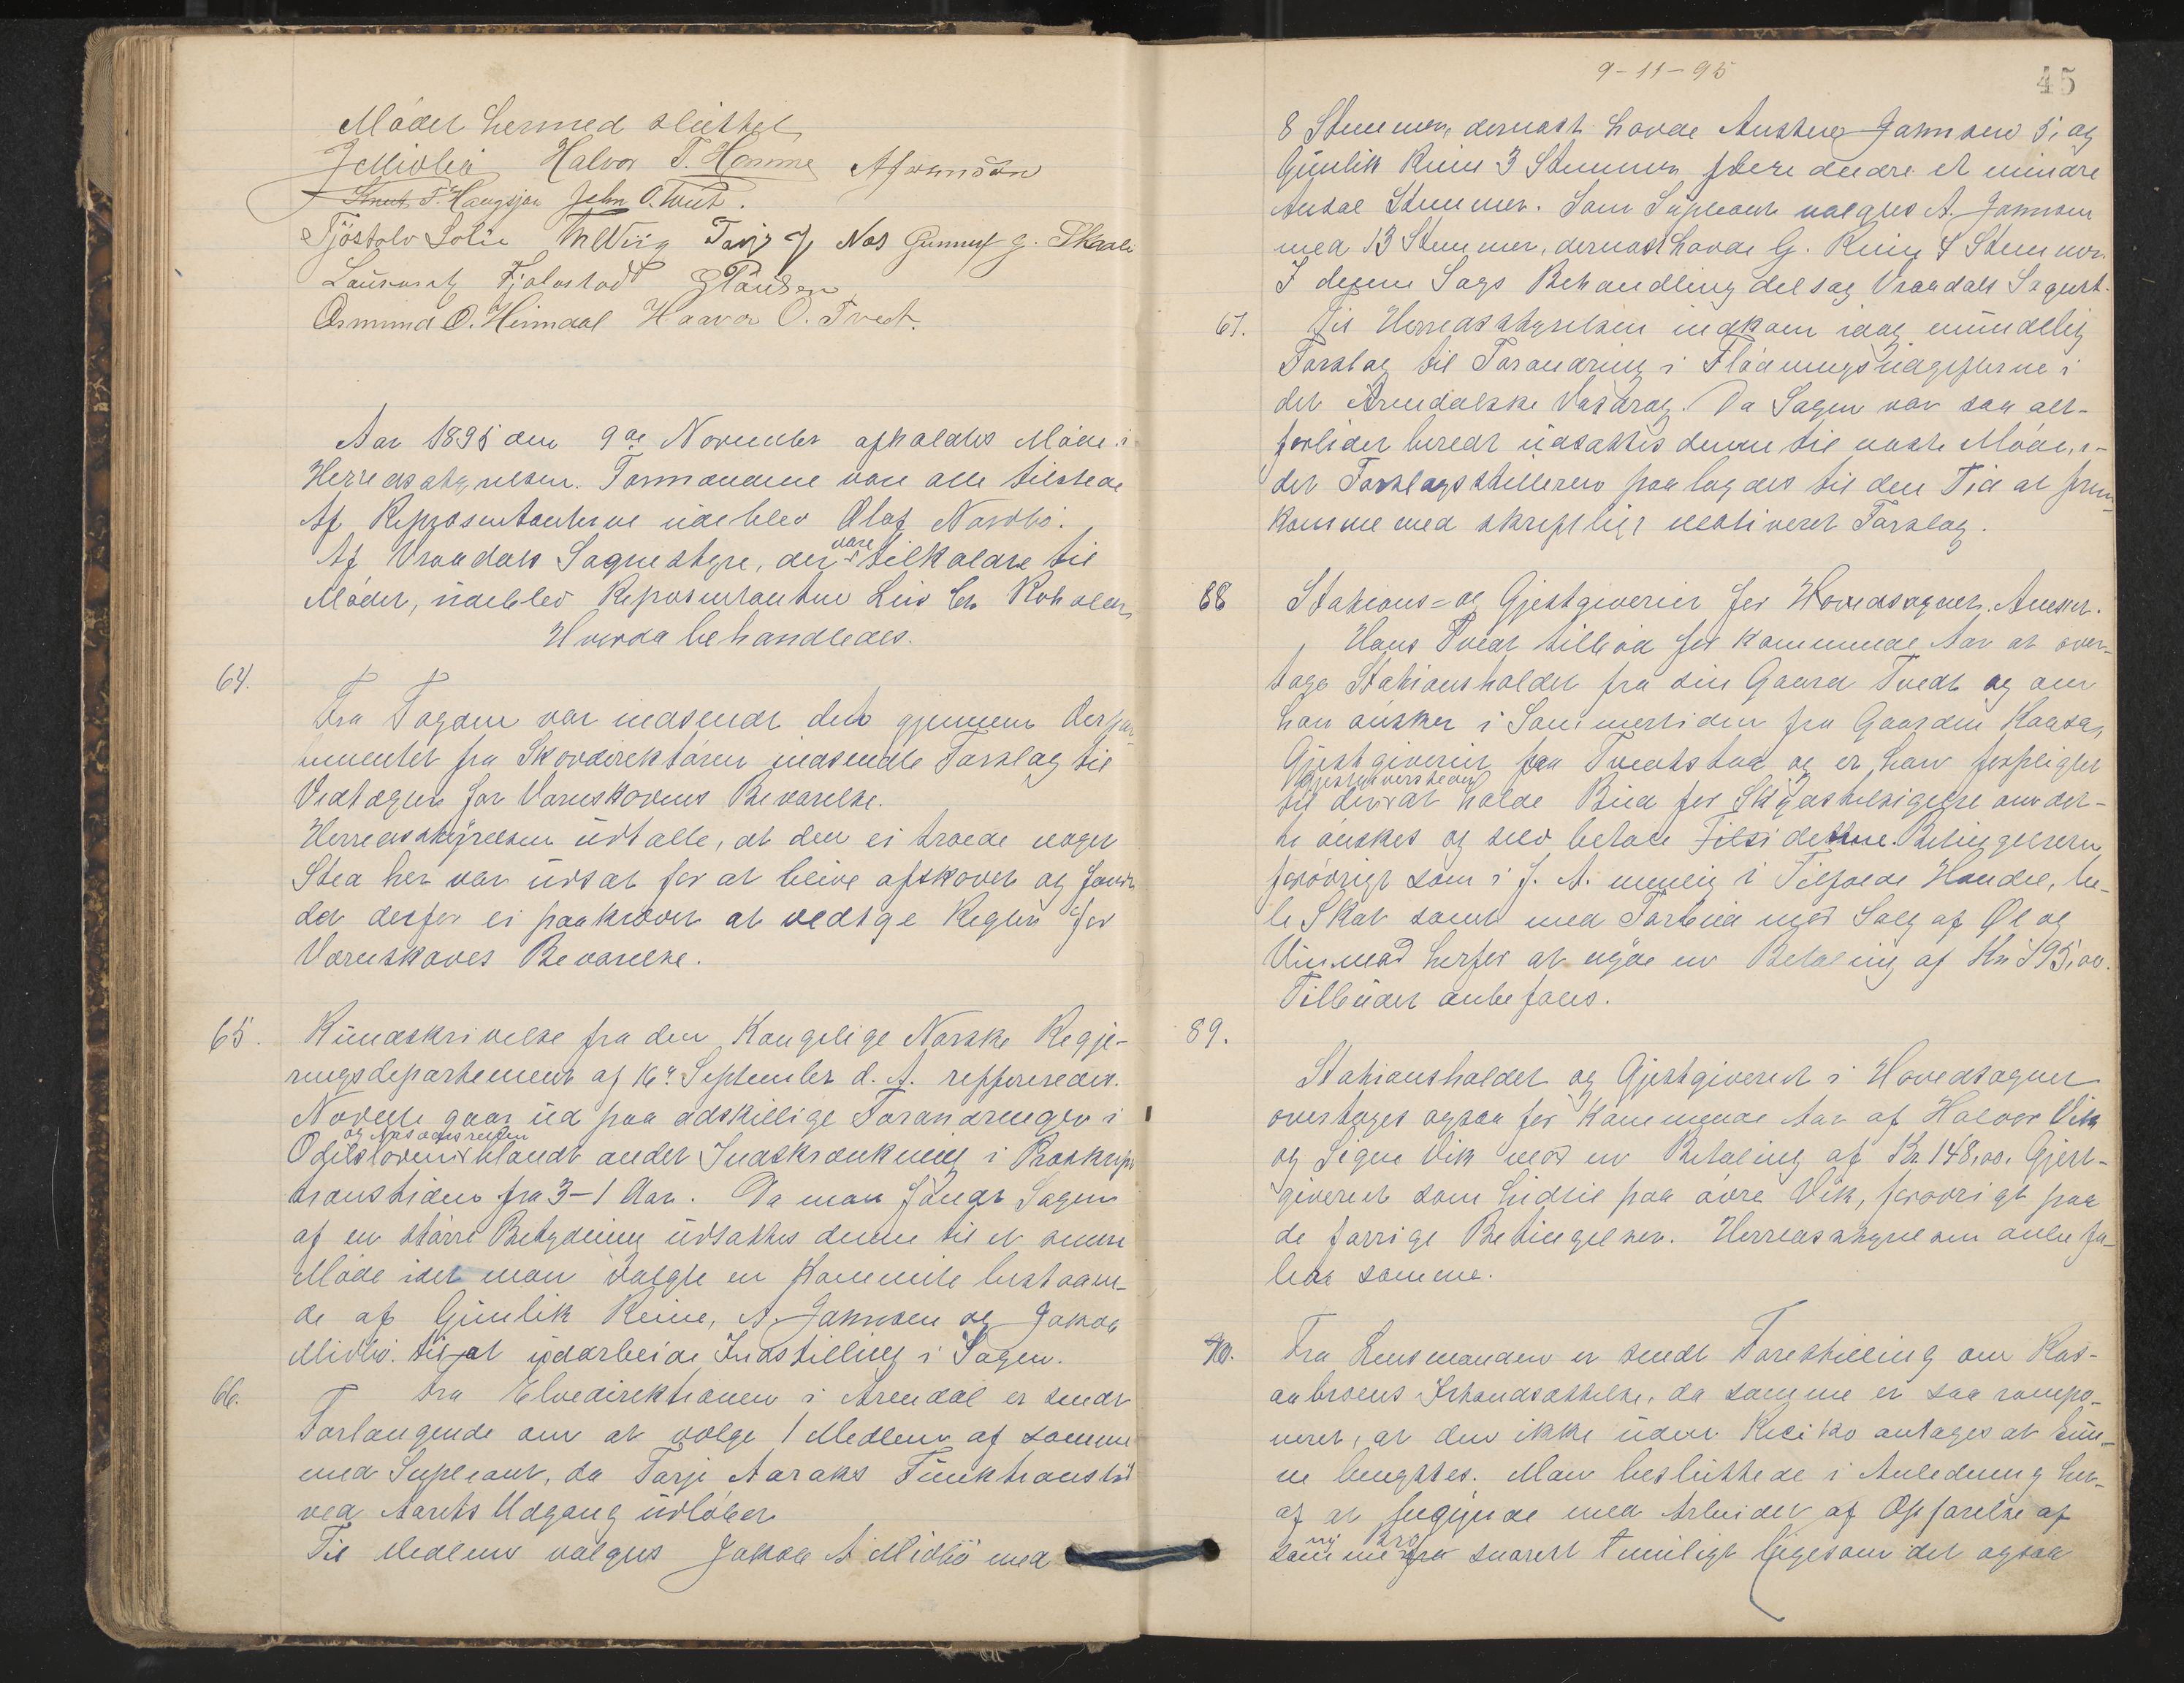 Mödet hermed sluttet
J Midbö Halvor T. Homme A Jamnson
Knut T. Haugsjaa John O. Tveit.
Tjöstolv Lolie Wiig Tarjei Nos Gunnuf G. Skaali
Laurantz Fjalestad Paulsen
Osmund O. Heimdal Haavor O. Tveit.
Aar 1895 den 9de November afholdtes Möde i
Herredsstyrelsen. Formændene vare alle tilstede
Af Repræsentanterne udeblev Olaf Næsbö.
Af Vraadals Sognestyre, der vare tilkaldte til
Mödet, udeblev Repræsentanten Leiv
Hvorda behandledes.
64.
Fra Fogden var indsendt det gjennem Depar-
tementet fra Skovdirektören indsendte Forslag til
Vedtægter for Værnskovens Bevarelse.
Herredsstyrelsen udtalte, at den ei troede noget
Sted her var udsat for at blive afskovet og fandt
det derfor ei paakrævet at vedtge Regler for
Værnskoves Bevarelse.
65. Rundskrivelse fra den Kongelige Norske Regje-
ringsdepartement af 16de September d. A. reffereredes.
Novelle gaar ud paa adskillige Forandringer i
og Aasædesretten
Odelsloven blandt andet Indskrænkning i Præskrip
tionstiden fra 3-1 Aar. Da man fandt Sagen
af en större Betydning udsattes denne til et senere
Möde idet man valgte en Kommite bestaaen-
de af Gunlik Reine, A. Jamnsen og Jakob
Midbö. til at udarbeide Indstilling i Sagen.
66. Fra Elvedirektionen i Arendal er sendt
Forlangende om at vælge 1 Medlem af samme
med Supleant, da Tarje Aaraks Funktionstid
ved Aarets Udgang udlöber
Til Medlem valgtes Jakob A Midbö med
9-11-95
45
8 Stemmer, dernæst havde Anstene Jamnsen 5, og
Gunlik Reine 3 Stemmer, flere andre et mindre
Antal Stemmer. Som Supleant valgtes A. Jamnsen
med 13 Stemmer, dernæst havde G. Reine 4 Stemmer.
I denne Sags Behandling deltog Vraadals Sognest.
67. Til Herredsstyrelsen indkom idag mundtlig
Forslag til Forandring i Flödningsudgifterne i
det Arendalske Vasdrag. Da Sagen var saa alt-
forlidet beredt udsattes denne til næste Möde, i-
det Forslagsstilleren paalagdes til den Tid at frem-
komme med skriftligt motiveret Forslag.
68 Stations- og Gjestgiverier for Hovedsognet.
Hans Tvedt tilböd for kommende Aar at over-
tage Stationsholdet fra sin Gaard Tvedt og om
han önsker i Sommertiden fra Gaarden Kaasa,
Gjestgiveriet paa Tveitstad og er han forpligtet
Gjestgiverstedet
til at holde Bud for Skydstilsigelse om det-
te önskes og selv betale Tilsidettene. Betingelserne
forövrigt som i f. A. nemlig i Tilfælde Handel, be-
le Skat samt med Forbud mod Salg af Øl og
Vin mod herfor at nyde en Betaling af Kr 395,00.
Tilbudet anbefales.
89.
Stationsholdet og Gjestgiveriet i Hovedsognet
overtages ogsaa for kommende Aar af Halvor Vik
og Signe Vik mod en Betaling af Kr. 148,00. Gjest-
giveriet som hidtil paa övre Vik, forövrigt paa
de forrige Betingelser. Herredsstyrelsen anbefa-
ler samme.
70. Fra Lensmanden er sendt Forestilling om Kas-
aabroens Istandsættelse, da samme er saa rampo-
neret, at den ikke uden Risiko antages at kun-
ne benyttes. Man besluttede i Anledning her-
af at begynde med Arbeidet af Opförelse af
ny Bro
samme snarest muligt ligesom det ogsaa